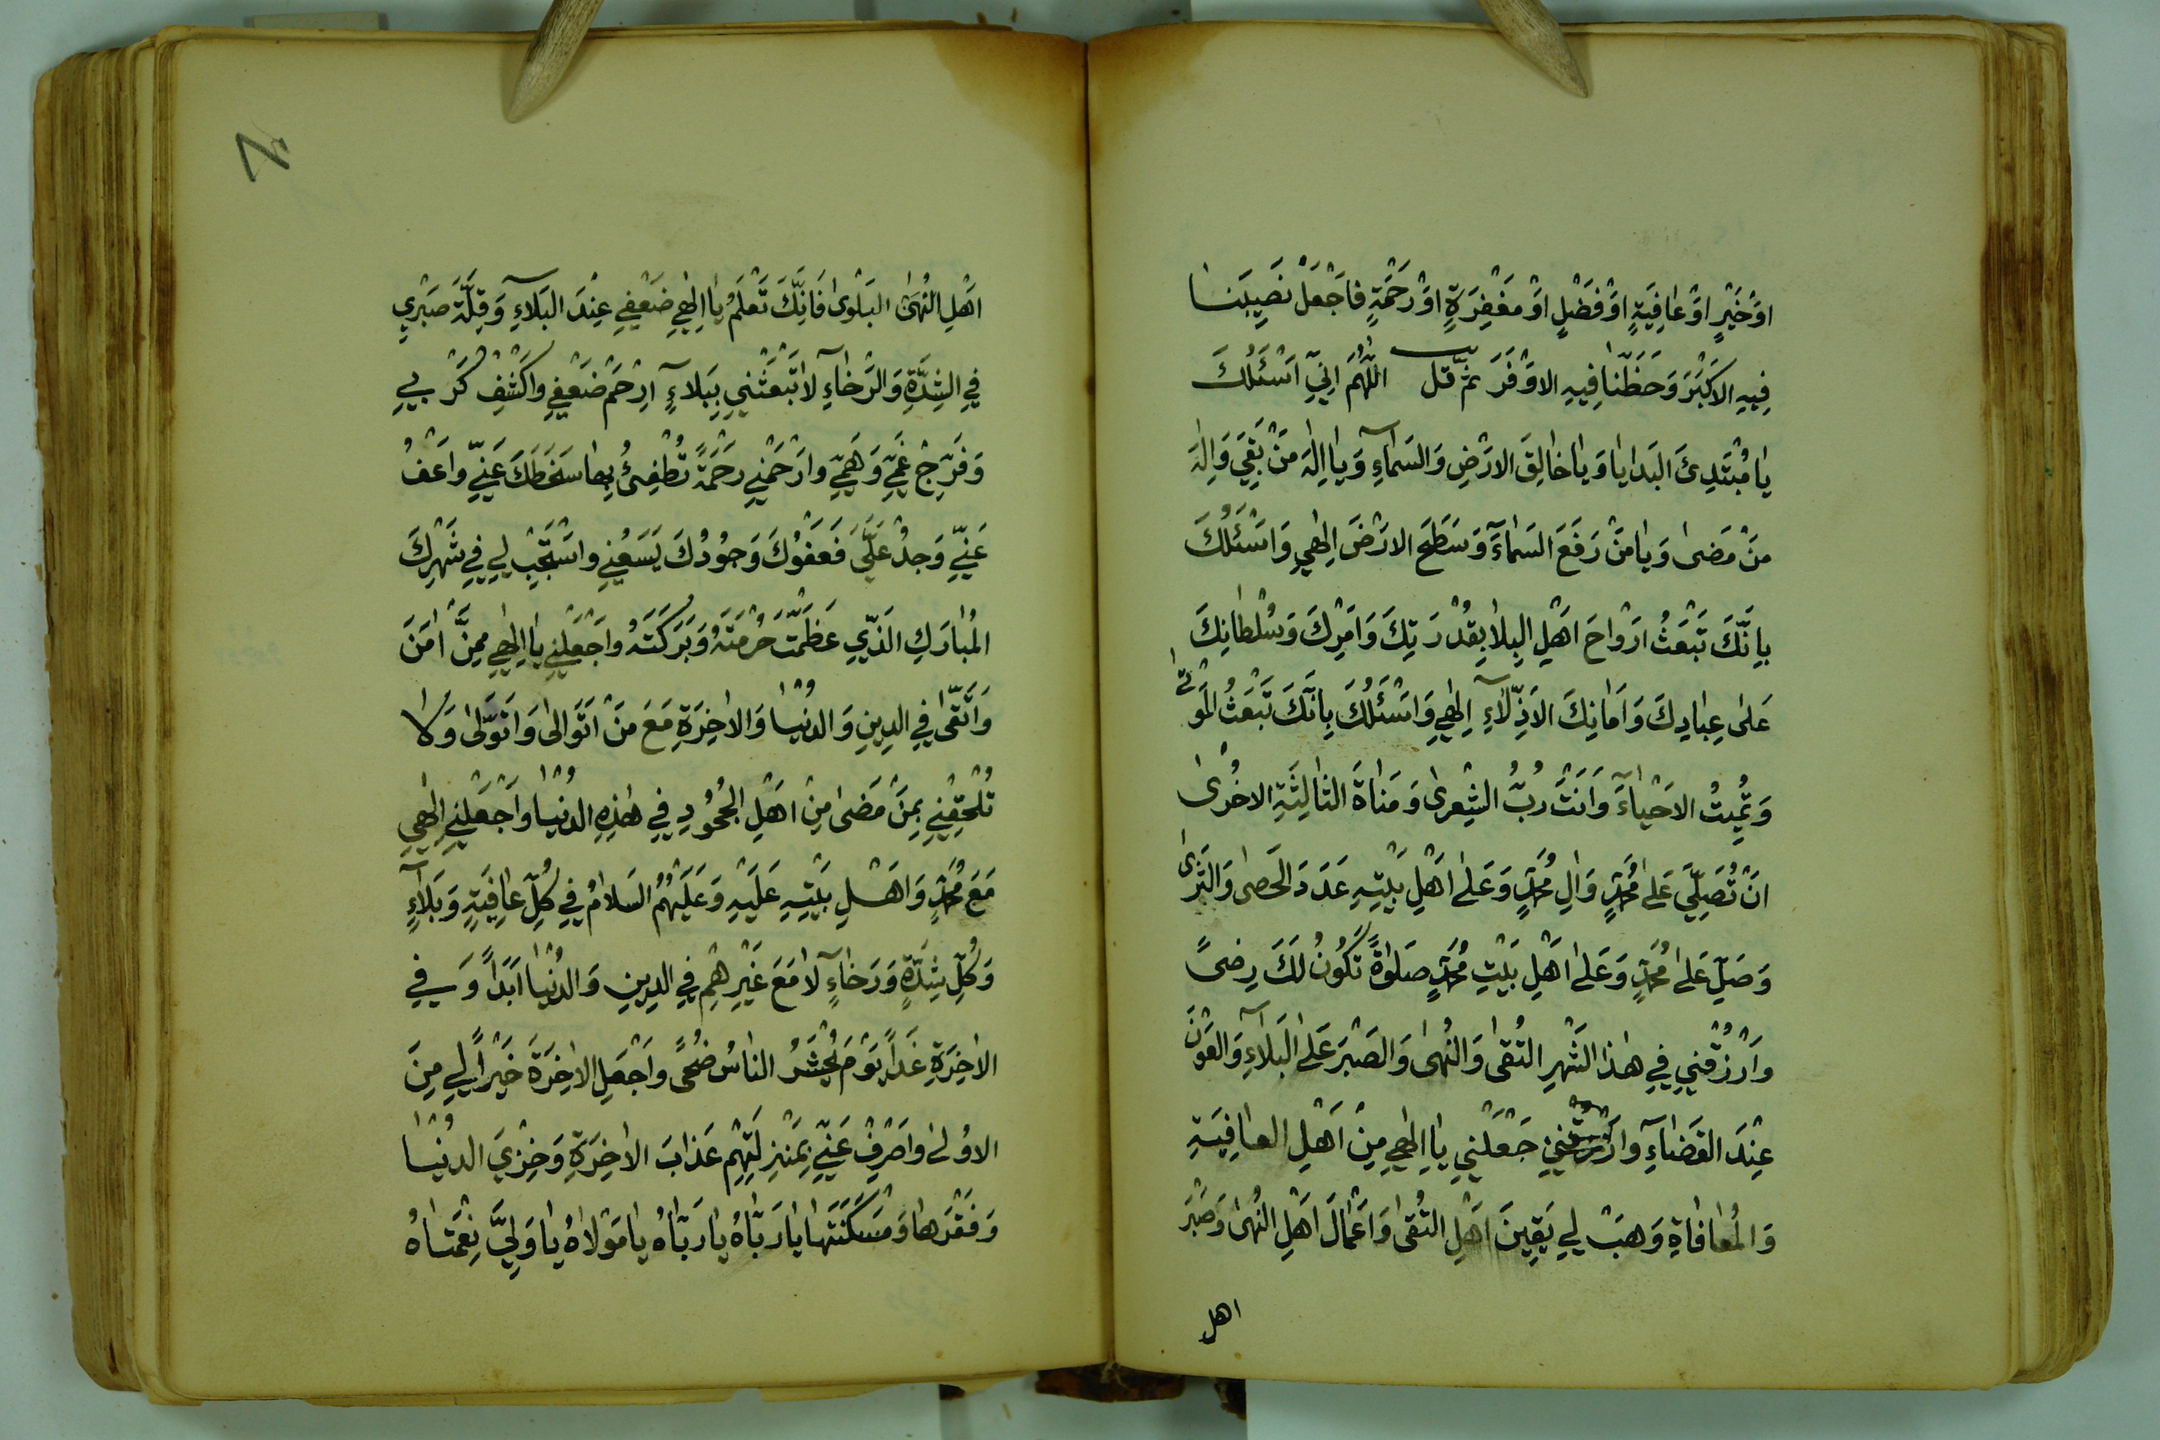 اَوْ خَيْرٍ اَوْ عٰافِيَةٍ اَوْ فَضْلٍ اَوْ مَغْفِرَةٍ اَوْ رَحْمَةٍ فٰاجْعَلْ نَصِيبَنٰا
فِيهِ الاَكْبَرَ وَحَظَّنٰا فِيهِ الاَوْفَرَ ثمّ قل اَللّٰهُمَّ اِنّيِ اَسْئَلُكَ
يٰا مُبْتَدِئَ البَدٰايٰا وَيٰا خٰالِقَ الاَرْضِ وَالسَمٰآءِ وَيٰا اِلٰهَ مَنْ بَقِيَ وَاِلٰهَ
مَنْ مَضىٰ وَيٰا مَنْ رَفَعَ السَمٰآءَ وَسَطَحَ الاَرْضَ اِلٰهيِ وَاَسْئَلُكَ
بِاَنَّكَ تَبْعَثُ اَرْوٰاحَ اَهْلِ البِلاٰ بِقُدْرَتِكَ وَاَمْرِكَ وَسُلْطٰانِكَ
عَلىٰ عِبٰادِكَ وَاَمٰانِكَ الاَذِلّآءِ اِلٰهيِ وَاَسْئَلُكَ بِاَنَّكَ تَبْعَثُ المَوْتىٰ
وَتُمِيتُ الاَحْيٰآءَ وَاَنْتَ رَبُّ الشِعرىٰ وَمَنٰاةَ الثٰالِثَةِ الاُخْرىٰ
اَنْ تُصَلِّيَ عَلىٰ مُحَمَّدٍ وَاٰلِ مُحَمَّدٍ وَعَلىٰ اَهْلِ بَيْتِهِ عَدَدَ الحَصىٰ وَالثَرىٰ
وَصَلِّ عَلىٰ مُحَمَّدٍ وَعَلىٰ اَهْلِ بَيْتِ مُحَمَّدٍ صَلوٰةً تَكُونُ لَكَ رِضىً
وَاَرْزُقْنيِ فيِ هٰذَا الشَهْرِ التُقىٰ وَالنُهىٰ وَالصَبْرَ عَلىٰ البَلآءِ وَالعَوْنَ
عِنْدَ القَضٰآءِ وَاَرْزُقْنيِ جَعَلْنيِ يٰا اِلٰهيِ مِنْ اَهْلِ العٰافِيَةِ
وَالمُعٰافٰاةِ وَهَبْ ليِ يَقِينَ اَهْلِ التُقىٰ وَاَعْمٰالَ اَهْلِ النُهىٰ وَصَبْرَ
اهل
اَهْلِ النُهىٰ البَلْوىٰ فَاِنَّكَ تَعْلَمُ يٰا اِلٰهيِ ضَعْفيِ عِنْدَ البَلآءِ وَقِلَّةَ صَبْرِي
فيِ الشِدَّةِ وَالرَخٰآءِ لاٰ تَبْعَثْنيِ بِبَلآءٍ اِرْحَمْ ضَعْفيِ وَاكْشِفْ كَرْبيِ
وَفَرِّجْ غَمّيِ وَهَمّيِ وَارْحَمْنيِ رَحْمَةً تُطْفِئُ بِهٰا سَخَطَكَ عَنّيِ وَاعْفُ
عَنّيِ وَجُدْ عَلَيَّ فَعَفْوُكَ وَجُودُكَ يَسَعُنيِ وَاسْتَجِبْ ليِ فيِ شَهْرِكَ
المُبٰارَكِ الَذّيِ عَظَّمْتَ حُرْمَتَهُ وَبَرَكَتَهُ وَاجْعَلْنيِ يٰا اِلٰهيِ مِمَّنْ اٰمَنَ
وَاتَّقىٰ فيِ الدِينِ وَالدُنْيٰا وَالاٰخِرَةِ مَعَ مَنْ اَتَوَالىٰ وَاَتَوَلّىٰ وَلاٰ
تُلْحِقْنيِ بِمَنْ مَضىٰ مِنْ اَهْلِ الجُحُودِ فيِ هٰذِهِ الدُنْيٰا وَاجْعَلْنيِ اِلٰهيِ
مَعَ مُحَمَّدٍ وَاَهْلِ بَيْتِهِ عَلَيْهِ وَعَلَيْهِمُ السَلاٰمُ فيِ كُلِّ عٰافِيَةٍ وَبَلآءٍ
وَكُلِّ شِدَّةٍ وَرَخٰآءٍ لاٰ مَعَ غَيْرِهِمْ فيِ الدِينِ وَالدُنْيٰا اَبَداً وَفيِ
الاٰخِرَةِ غَداً يَوْمَ يُحْشَرُ النٰاسُ ضُحىً وَاجْعَلِ الاٰخِرَةَ خَيْراً ليِ مِنَ
الاُولىٰ وَاصْرِفْ عَنّيِ بِمَنْزِلَتِهِمْ عَذٰابَ الاٰخِرَةِ وَخِزْيَ الدُنْيٰا
وَفَقْرَهٰا وَمَسْكَنَتَهٰا يٰا رَبّٰاهُ يٰا رَبّٰاهُ يٰا مَوْلاٰهُ يٰا وَلِيَّ نِعْمَتٰاهُ